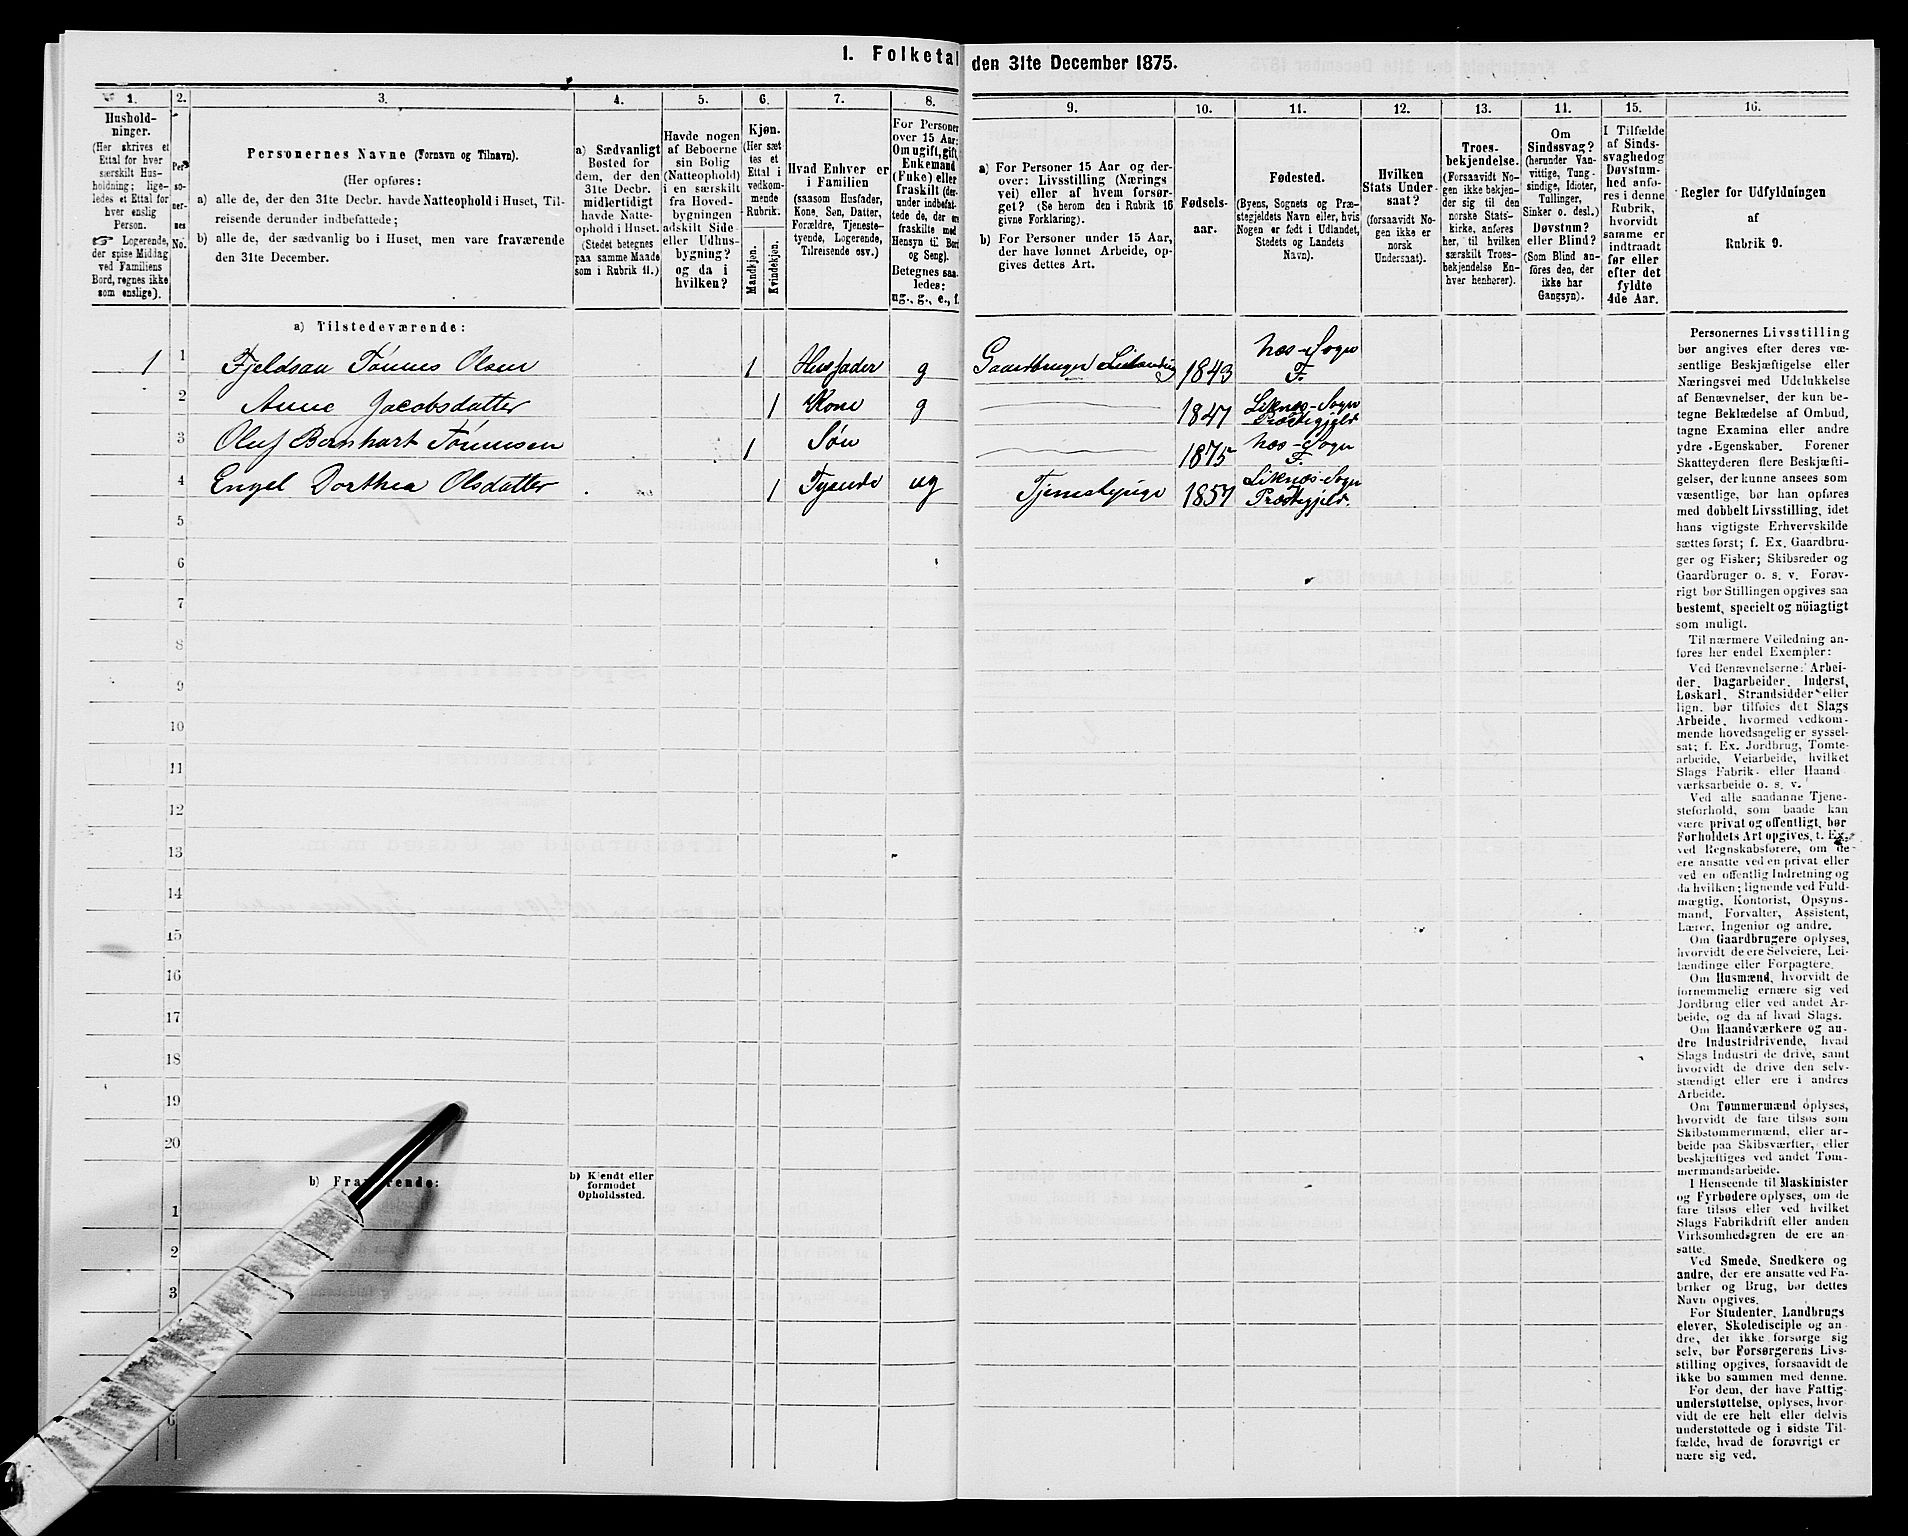 1. Folketal den 31te December 1875.
1. 2. 3. 4. 5. 6. 7. 8. 9. 10. 11. 12. 13. 11. 15. 16.
Hushold-
ninger.
(Her skrives et
Ettal for hver
særskilt Hus-
holdning; lige-
ledes et Ettal for
hver enslig
Person.
☞ Logerende,
der spise Middag
ved Familiens
Bord, regnes ikke
som enslige).
Per-
so-
ner-
nes
No.
Personernes Navne (Fornavn og Tilnavn).
(Her opføres:
a) alle de, der den 31te Decbr. havde Natteophold i Huset, Til-
reisende derunder indbefattede;
b) alle de, der sædvanlig bo i Huset, men vare fraværende
den 31te December.
a) Sædvanligt
Bosted for
dem, der den
31te Decbr.
midlertidigt
havde Natte-
ophold i Huset.
(Stedet betegnes
paa samme Maade
som i Rubrik 11.)
Havde nogen
af Beboerne
sin Bolig
(Natteophold)
i en særskilt
fra Hoved-
bygningen
adskilt Side-
eller Udhus-
bygning?
og da i
hvilken?
Kjøn.
(Her sæt
tes et
Ettal i
vedkom-
mende
Rubrik.
Mandkjøn.
Kvindekjøn.
Hvad Enhver er
i Familien
(saasom Husfader,
Kone, Søn, Datter,
Forældre, Tjeneste-
tyende, Logerende,
Tilreisende osv.)
For Personer
over 15 Aar:
Om ugift, gift,
Enkemand
(Fuke) eller
fraskilt (der-
under indbefat-
tede de, der ere
fraskilte med
Hensyn til Bord
og Seng).
Betegnes saa-
ledes:
ug., g., e., f.
a) For Personer 15 Aar og der-
over: Livsstilling (Nærings
vei) eller af hvem forsør-
get? (Se herom den i Rubrik 16
givne Forklaring).
b) For Personer under 15 Aar,
der have lønnet Arbeide, op-
gives dettes Art.
Fødsels-
aar.
Fødested.
(Byens, Sognets og Præ-
stegjeldets Navn eller, hvis
Nogen er født i Udlandet,
Stedets og Landets
Navn).
Hvilken
Stats Under-
saat?
(forsaavidt No-
gen ikke er
norsk
Undersaat).
Troes-
bekjendelse.
(Forsaavidt No-
gen ikke bekjen-
der sig til den
norske Stats-
kirke, anføres
her, til hvilken
særskilt Troes-
bekjendelse En-
hver henhører).
Om
Sindssvag?
(herunder Van-
vittige, Tung-
sindige, Idioter,
Tullinger,
Sinker o. desl.)
Døvstum?
eller Blind?
(Som Blind an-
føres den, der
ikke har
Gangsyn).
I Tilfælde
af Sinds-
svaghedog
Døvstum-
hed anfø-
res i denne
Rubrik,
hvorvidt
samme er
indtraadt
før eller
efter det
fyldte
4de Aar.
Regler for Udfyldningen
af
Rubrik 9.
a) Tilstedeværende:
1 1 Fjeldsaa Tønnes Olsen 1 Husfader g Gaardbruger Leilænding 1843 Næs-Sogn
F.
2 Anne Jacobsdatter 1 Kone g 1847 Liknæs-Sogn
Præstegjeld
3 Oluf Bernhart Tønnesen 1 Søn 1875 Næs-Sogn
F.
4 Engel Dorthea Olsdatter 1 Tyende ug Tjenestepige 1857 Liknæs-Sogn
Præstegjeld.
5
6
7
8
9
10
11
12
13
14
15
16
17
18
19
20
b) Fra rende:
b) Kjendt eller
formodet
Opholdssted.
1
2
3
6
Personernes Livsstilling
bør angives efter deres væ-
sentlige Beskjæftigelse eller
Næringsvei med Udelukkelse
af Benævnelser, der kun be-
tegne Beklædelse af Ombud,
tagne Examina eller andre
ydre Egenskaber. Forener
Skatteyderen flere Beskjæfti-
gelser, der kunne ansees som
væsentlige, bør han opføres
med dobbelt Livsstilling, idet
hans vigtigste Erhvervskilde
sættes først; f. Ex. Gaardbru-
ger og Fisker; Skibsreder og
Gaardbruger o. s. v. Forøv-
rigt bør Stillingen opgives saa
bestemt, specielt og nöiagtigt
som muligt.
Til nærmere Veiledning an-
føres her endel Exempler:
Ved Benævnelserne: Arbei-
der, Dagarbeider, Inderst,
Løskarl, Strandsidder eller
lign. bør tilføies det Slags
Arbeide, hvormed vedkom-
mende hovedsagelig er syssel-
sat; f. Ex. Jordbrug, Tomte-
arbeide, Veiarbeide, hvilket
Slags Fabrik- eller Haand
værksarbeide o. s. v.
Ved alle saadanne Tjene-
steforhold, som baade kan
være privat og offentligt, bør
Forholdets Art opgives, t. Ex.
ved Regnskabsførere, om de
ere ansatte ved en privat eller
ved en offentlig Indretning og
da hvilken; lignende ved Fuld-
mægtig, Kontorist, Opsyns-
mand, Forvalter, Assistent,
Lærer, Ingeniør og andre.
Om Gaardbrugere oplyses,
hvorvidt de ere Selveiere, Lei-
lændinge eller Forpagtere.
Om Husmænd, hvorvidt de
fornemmelig ernære sig ved
Jordbrug eller ved andet Ar-
beide, og da af hvad Slags.
Om Haandværkere og an-
dre Industridrivende, hvad
Slags Industri de drive, samt
hvorvidt de drive den selv-
stændigt eller ere i andres
Arbeide.
Om Tømmermænd oplyses,
hvorvidt de fare tilsøs som
Skibstømmermænd, eller ar-
beide paa Skibsværfter, eller
beskjæftiges ved andet Tøm-
mermandsarbeide.
I Henseende til Maskinister
og Fyrbødere oplyses, om de
fare tilsøs eller ved hvilket
Slags Fabrikdrift eller anden
Virksomhedsgren de ere an-
satte.
Ved Smede, Snedkere og
andre, der ere ansatte ved Fa-
briker og Brug, bør dettes
Navn opgives.
For Studenter, Landbrugs
elever, Skoledisciple og an
dre, der ikke forsørge sig
selv, bør Forsørgerens Livs-
stilling opgives, forsaavidt de
ikke bo sammen med denne.
For dem, der have Fattig-
understøttelse, oplyses, hvor-
vidt de ere helt eller delvis
understøttede og i sidste Til-
fælde, hvad de forøvrigt er
nære sig ved.